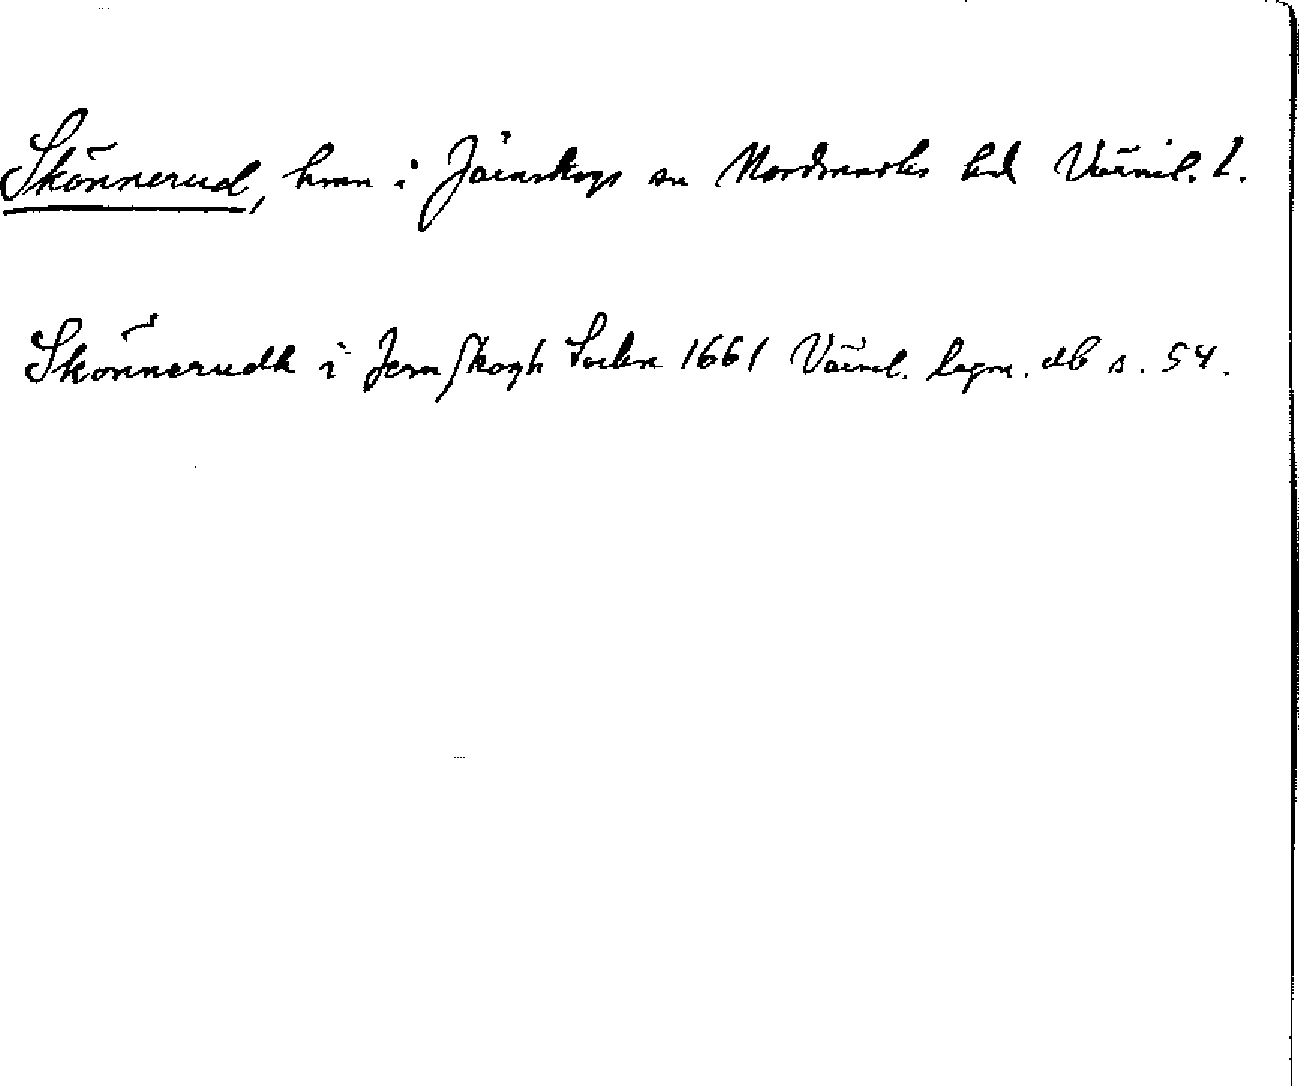 Skönnerud, hmn i Järnskogs sn Nordmarks hd Värml. l.
Skönnerudh i Jernskogh Sockn 1661 Värml. lagm. db s. 54.